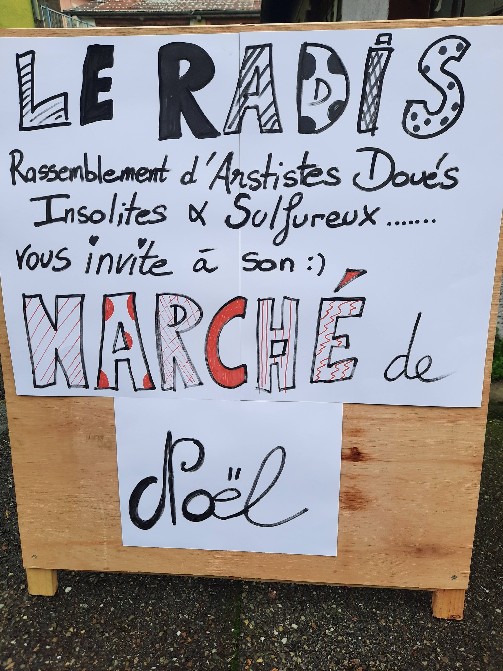 LE RADIS
Rassemblement d'Arstistes Doués
Insolites & Sulfureux .......
vous invite à son :)
MARCHÉ de
Noël